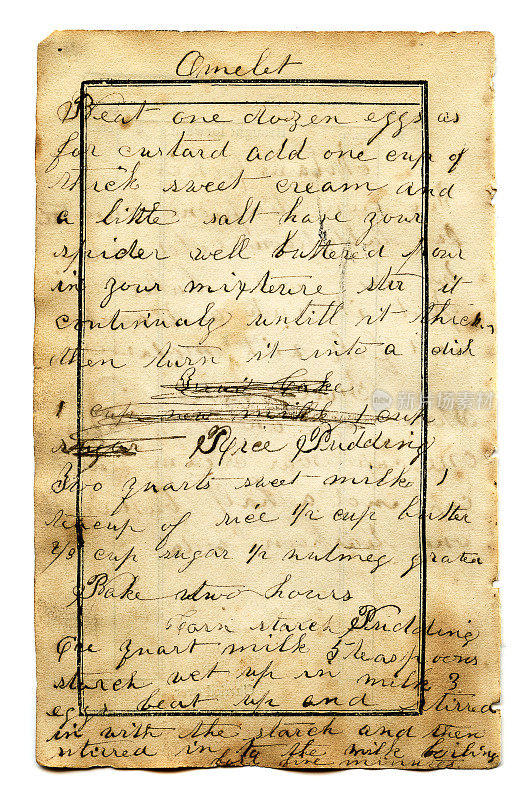 Omelet
Beat one dozen eggs as
for custard add one cup of
thick sweet cream and
a little salt have your
spider well buttered pour
in your mixterure stir it
continualy untill it thick
then turn it into a dish
Fruit Cake
1 cup new milk 1 cup
sugar Rice Pudding
Two quarts sweet milk 1
teacup of rice 1/2 cup butter
cup sugar 1/2 nutmeg grated
Bake two hours
Corn starch Pudding
One quart milk 5 teaspoons
starch wet up in milk 3
eggs beat up and stirred
in with the starch and then
stirred in to the milk boiling
boil five minutes
iStock